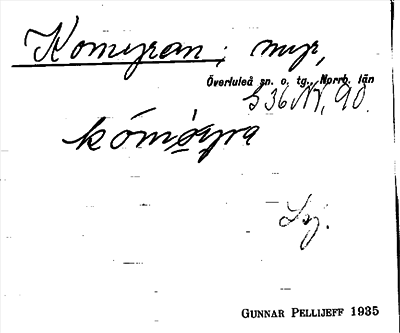 Komyran; myr,
Överluleå sn. o. tg., Norrb. län
S 36 NV, 90.
kómỳra
GUNNAR PELLIJEFF 1935